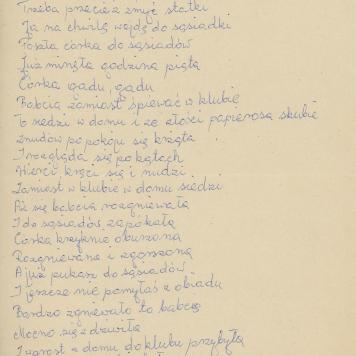 Trzeba przecież zmyć statki
Ja na chwilę wejdę do sąsiadki
Poszła córka do sąsiadów
Już minęła godzina piąta
Córka gadu, gadu
Babcia zamiast śpiewać w klubie
To siedzi w domu i ze złości papierosa skubie
Znudów po pokoju się krząta
I rozgląda się po kątach
Wierci kręci się i nudzi
Zamiast w klubie w domu siedzi
Aż się babcia rozgniewała
I do sąsiadów zapukała
Córka krzyknie oburzona
Rozgniewana i zgorszona
A już pukasz do sąsiadów
I jeszcze nie pomyłaś z obiadu
Bardzo zgniewało to babcię
Mocno się zdziwiła
I zaraz z domu do klubu przybyła